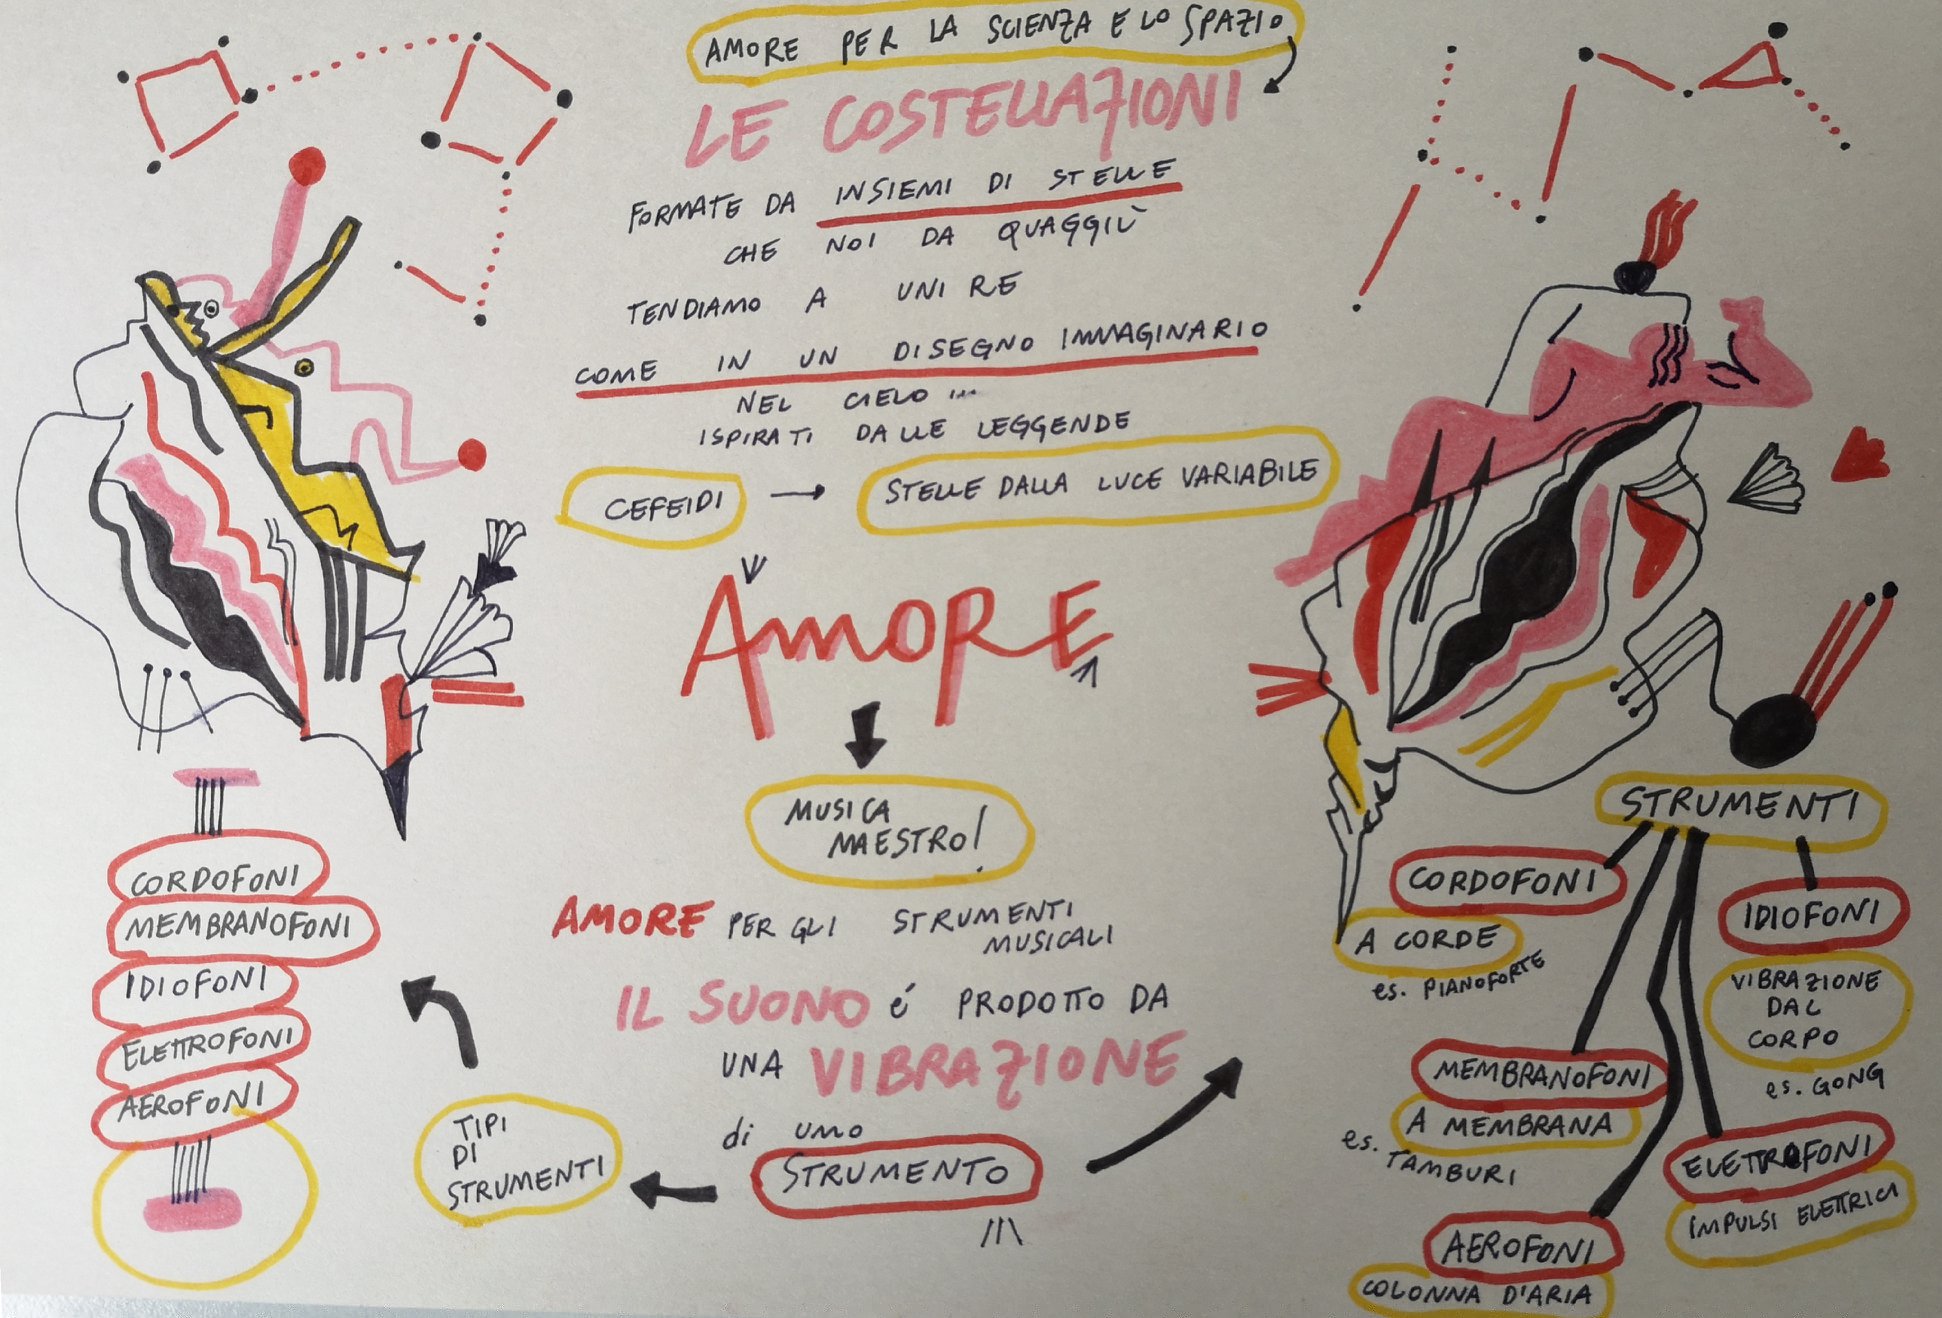 AMORE PER LA SCIENZA E LO SPAZIO
LE COSTELLAZIONI
FORMATE DA INSIEMI DI STELLE
CHE NOI DA QUAGGIÙ
TENDIAMO A UNIRE
COME IN UN DISEGNO IMMAGINARIO
NEL CIELO ...
ISPIRATI DALLE LEGGENDE
CEFEIDI → STELLE DALLA LUCE VARIABILE
AMORE
MUSICA
MAESTRO!
AMORE PER GLI STRUMENTI
MUSICALI
IL SUONO é PRODOTTO DA
UNA VIBRAZIONE
di uno
STRUMENTO
TIPI
DI
STRUMENTI
CORDOFONI
MEMBRANOFONI
IDIOFONI
ELETTROFONI
AEROFONI
STRUMENTI
CORDOFONI
A CORDE
es. PIANOFORTE
IDIOFONI
VIBRAZIONE
DAL
CORPO
es. GONG
MEMBRANOFONI
A MEMBRANA
es. TAMBURI
ELETTROFONI
IMPULSI ELETTRICI
AEROFONI
COLONNA D'ARIA